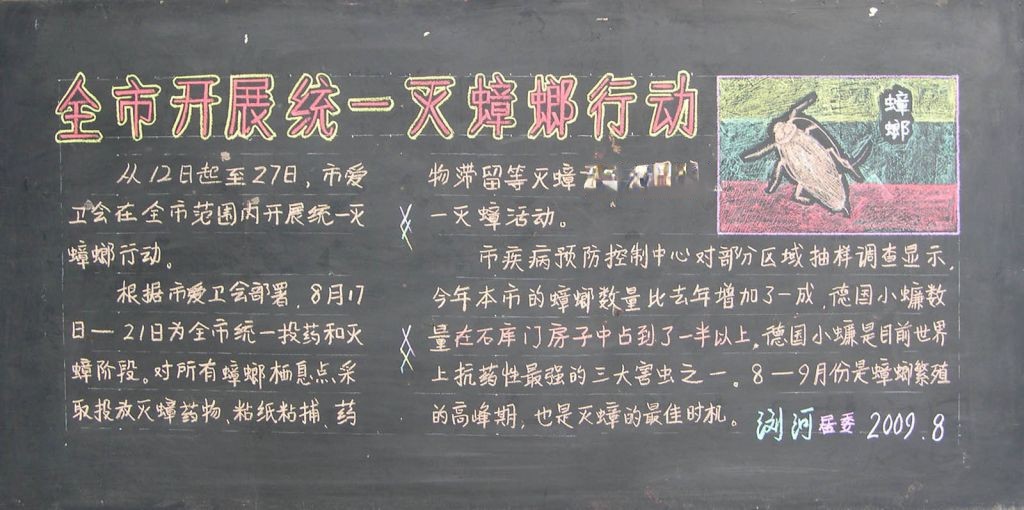 全市开展统一灭蟑螂行动
蟑
螂
从12日起至27日，市爱
卫会在全市范围内开展统一灭
蟑螂行动。
根据市爱卫会部署，8月17
日—21日为全市统一投药和灭
蟑阶段。对所有蟑螂栖息点采
取投放灭蟑药物、粘纸粘捕、药
物滞留等灭蟑
一灭蟑活动。
市疾病预防控制中心对部分区域抽样调查显示，
今年本市的蟑螂数量比去年增加了一成，德国小蠊数
量在石库门房子中占到了一半以上，德国小蠊是目前世界
上抗药性最强的三大害虫之一。8—9月份是蟑螂繁殖
的高峰期，也是灭蟑的最佳时机。
浏河居委 2009.8